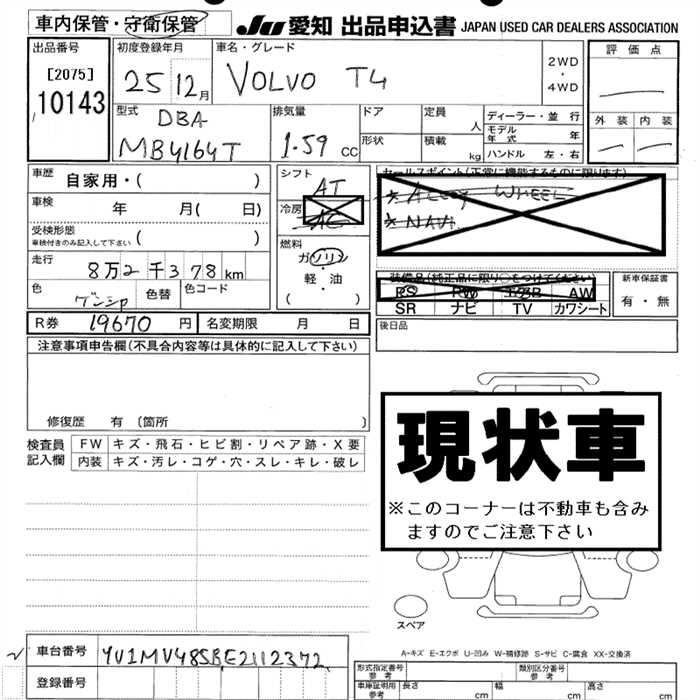 車内保管・守衛保管 JU 愛知 出品申込書 JAPAN USED CAR DEALERS ASSOCIATION
出品番号 初度登録年月 車名・グレード 評価点
[2075] 10143 25 12月 VOLVO T4 2WD・4WD
型式 排気量 ドア 定員 人 ディーラー・並行 外装 内装
DBA モデル年式 年
MB4164T 1.59 CC 形状 積載 kg ハンドル 左・右
車歴 自家用・( ) シフト AT セールスポイント(正常に機能するものに限ります)
車検 年 月( 日) 冷房 AC *ALLOY WHEEL
*NAVI
受検形態 車検付きのみ記入して下さい ( ) 燃料
走行 8万2千378km ガソリン 装備品(純正品に限り○をつけてください) 新車保証書
色 色替 色コード 軽・油 PS PW AW 有・無
( ) SR ナビ TV カワシート
R券 19670円 名変期限 月 日 後日品
注意事項申告欄(不具合内容等は具体的に記入して下さい)
修復歴 有 〔箇所 〕
検査員記入欄 FW キズ・飛石・ヒビ割・リペア跡・X要
内装 キズ・汚レ・コゲ・穴・スレ・キレ・破レ
現状車
※このコーナーは不動車も含み
ますのでご注意下さい
スペア
A-キズ E-エクボ U-凹み W-補修跡 S-サビ C-腐食 XX-交換済
車台番号 YV1MV485BE2112372 形式指定番号 参考 類別区分番号 参考
登録番号 車庫証明用 参考 長さ cm 幅 cm 高さ cm